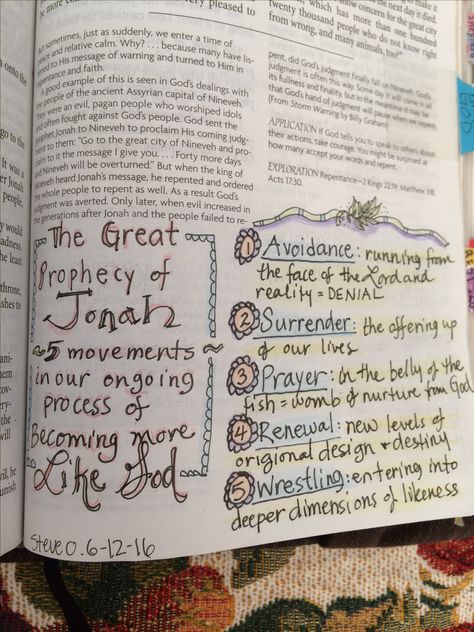 pleased to
make it
show concern for the great
twenty thousand people who do not know right
from wrong, and many animals, too?"
the next day it died.
which has more than one hundred
But sometimes, just as suddenly, we enter a time of
peace and relative calm. Why? . . . because many have lis-
to His message of warning and turned to Him in
repentance and faith.
A good example of this is seen in God's dealings with
the people of the ancient Assyrian capital of Nineveh.
They were an evil, pagan people who worshiped idols
and often fought against God's people. God sent the
prophet Jonah to Nineveh to proclaim His coming judg-
ment to them: "Go to the great city of Nineveh and pro-
claim to it the message I give you. . . . Forty more days
and Nineveh will be overturned." But when the king of
Nineveh heard Jonah's message, he repented and ordered
the whole people to repent as well. As a result God's
judgment was averted. Only later, when evil increased in
the generations after Jonah and the people failed to re-
pent, did God's judgment finally fall on Nineveh. God's
judgment is often this way: Some day it will come in all
its fullness and finality, but in the meantime it may be
that God's hand of judgment will pause when we repent.
(From Storm Warning by Billy Graham)
APPLICATION If God tells you to speak to others about
their actions, take courage. You might be surprised at
how many accept your words and repent.
EXPLORATION Repentance—2 Kings 22:19; Matthew 3:8;
Acts 17:30.
The Great
Prophecy of
Jonah
~5 movements ~
in our ongoing
process of
Becoming more
Like God
Steve O. 6-12-16
1 Avoidance: running from
the face of the Lord and
reality = DENIAL
2 Surrender: the offering up
of our lives
3 Prayer: in the belly of the
fish = womb of nurture from God
4 Renewal: new levels of
origional design + destiny
5 Wrestling: entering into
deeper dimensions of likeness